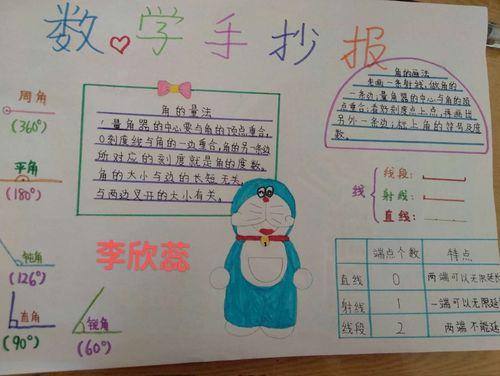 数学手抄报
角的量法
量角器的中心要与角的顶点重合,
0刻度线与角的一边重合,角的另一条边
所对应的刻度就是角的度数。
角的大小与边的长短无关,
与两边叉开的大小有关。
角的画法
先画一条射线,做角的
一条边;量角器的中心与角的顶
点重合;看好刻度点上点,再画出
另外一条边;标上角的符号及度
数。
周角
(360°)
平角
(180°)
钝角
(126°)
直角
(90°)
锐角
(60°)
李欣蕊
线
线段:
射线:
直线:
端点个数 特点
直线 0 两端可以无限延长
射线 1 一端可以无限
线段 2 两端不能延